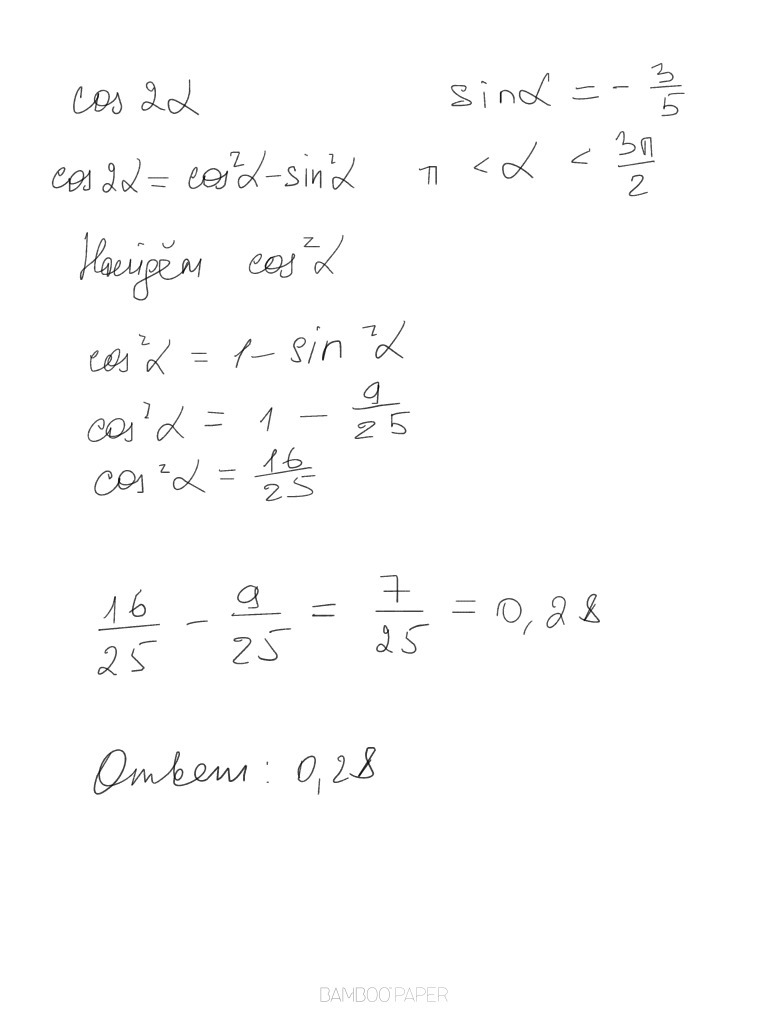 cos 2α
sinα = - 3/5
cos2α = cos²α-sin²α
π < α < 3π/2
Найдём cos²α
cos²α = 1 - sin²α
cos²α = 1 - 9/25
cos²α = 16/25
16/25 - 9/25 = 7/25 = 0,28
Ответ: 0,28
BAMBOO PAPER